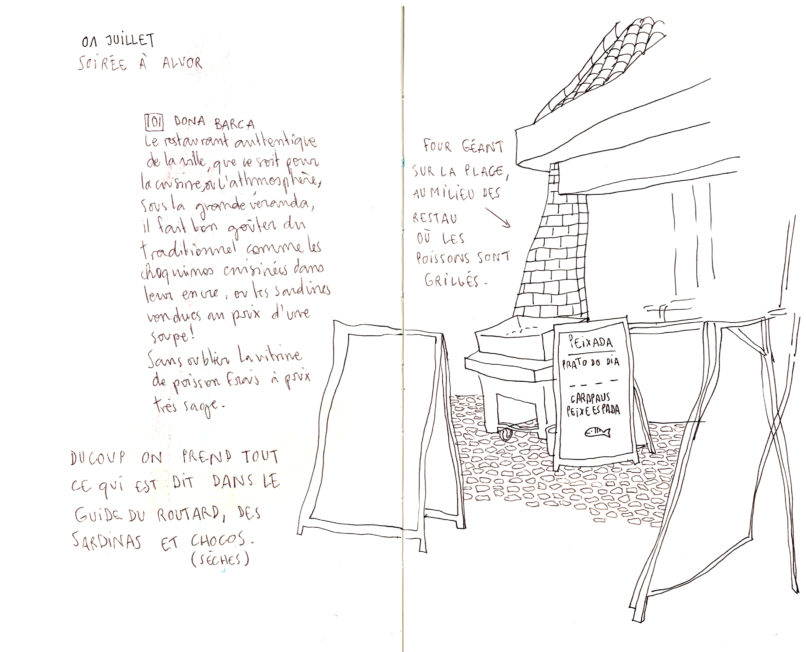 01 JUILLET
SOIRÉE À ALVOR
101 DONA BARCA
Le restaurant authentique
de la ville, que ce soit pour
la cuisine, ou l'athmosphère,
sous la grande véranda,
il fait bon goûter du
traditionnel comme les
choquinos cuisinées dans
leur encre, ou les sardines
vendues au prix d'une
soupe!
Sans oublier la vitrine
de poisson frais à prix
très sage.
DUCOUP ON PREND TOUT
CE QUI EST DIT DANS LE
GUIDE DU ROUTARD, DES
SARDINAS ET CHOCOS.
(SÈCHES)
FOUR GÉANT
SUR LA PLAGE,
AU MILIEU DES
RESTAU
OÙ LES
POISSONS SONT
GRILLÉS.
PEIXADA
PRATO DO DIA
CARAPAUS
PEIXE ESPADA